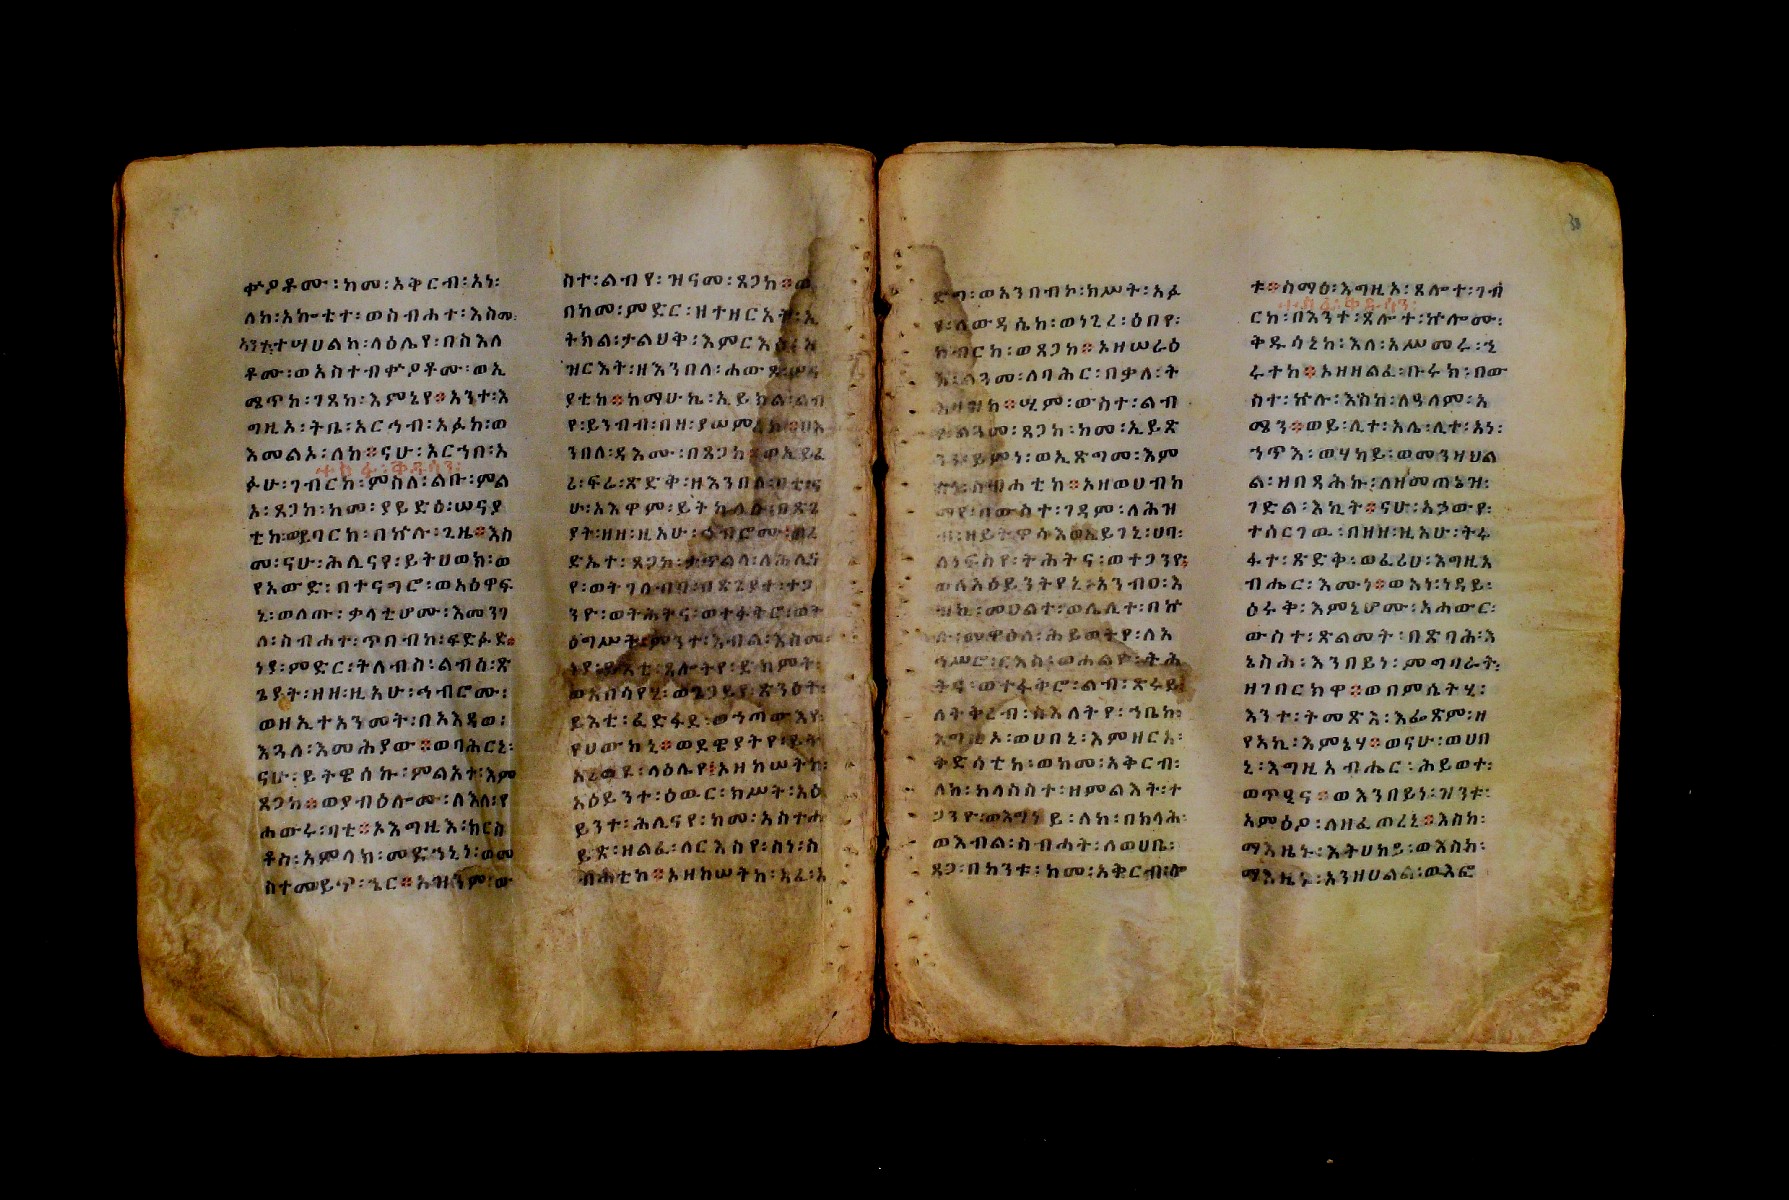 ቍዖቶሙ፡ከመ፡አቅርብ፡አነ፡
ለከ፡አኰቴተ፡ወስብሐተ፡እስመ፡
አንተ፡ሣሀልከ፡ላዕሌየ፡በስእለ
ቶሙ፡ወአስተብቍዖቶሙ፡ወኢ
ሜጥከ፡ገጸከ፡እምኔየ፨አንተ፡እ
ግዚኦ፡ትቤ፡አርኅብ፡አፉከ፡ወ
እመልኦ፡ለከ፨ናሁ፡አርኀበ፡አ
ፉሁ፡ገብርከ፡ምስለ፡ልቡ፡ምል
አ፡ጸጋከ፡ከመ፡ያይድዕ፡ሠናያ
ቲከ፡ወይባርከ፡በኵሉ፡ጊዜ፨እስ
መ፡ናሁ፡ሕሊናየ፡ይትሀወክ፡ወ
የአውድ፡በተናግሮ፡ወአዕዋፍ
ኒ፡ወለጡ፡ቃላቲሆሙ፡እመንገ
ለ፡ስብሐተ፡ጥበብከ፡ፍድፉድ፨
ነያ፡ምድር፡ትለብስ፡ልብሰ፡ጽ
ጌያት፡ዘዘ፡ዚአሁ፡ኅብሮሙ፡
ወዘኢተአንመት፡በእእዳወ፡
እጓለ፡እመሕያው፨ወባሕርኒ፡
ናሁ፡ይትዌሰኩ፡ምልአት፡እም
ጸጋከ፨ወያብዕሎሙ፡ለእለ፡የ
ሐውሩ፡ባቲ፨ኦእግዚእ፡ክርስ
ቶስ፡አምላክ፡መድኀኒነ፡ወመ
ስተመይጥ፡ኄር፨
ስተ፡ልብየ፡ዝናመ፡ጸጋከ፨
በከመ፡ምድር፡ዘተዘርአት፡ኢ
ትክል፡ታልህቅ፡እምርእሳ፡
ዝርእት፡ዘእንበለ፡ሐውጾ፡
ያቲከ፨ከማሁኬ፡ኢይክል፡ልብ
የ፡ይንብብ፡በዘ፡ያሠምረከ፨
ንበለ፡ዳእሙ፡በጸጋከ፨ወኢይፈ
ሪ፡ፍሬ፡ጽድቅ፡ዘእንበለ፡
ሁ፡አእዋም፡ይትከላዕ፡በጽጌ
ያት፡ዘዘ፡ዚአሁ፡ኅብሮሙ፡
ድኤተ፡ጸጋከ፡ለሕሊና
የ፡ወትገሉብባ፡በጽጌያተ፡ተጋ
ንዮ፡ወትሕትና፡ወተፋቅሮ፡ወት
ዕግሥት፡ምንተ፡እብል፡እስመ፡
ነያ፡ይእቲ፡ጸሎትየ፡ድክምት፡
ወአበሳየሂ፡ወጌጋይየ፡ጽንዕት፡
ይእቲ፡ፈድፋደ፡ወኀጣውእየ፡
የሀውከኒ፨ወደዌያትየ፡
ላዕሌየ፨ኦዘከሠትከ፡
አዕይንተ፡ዕዉር፡ክሥት፡አዕ
ይንተ፡ሕሊናየ፡ከመ፡አስተሐ
ይጽ፡ዘልፈ፡ለርእስየ፡ስነ፡ስ
ብሐቲከ፨ኦዘከሠትከ፡አፈ፡አ
ድግ፡ወአንበብኮ፡ክሥት፡አፉ
የ፡ለውዳሴከ፡ወነጊረ፡ዕበየ፡
ክብርከ፡ወጸጋከ፨ኦዘሠራዕ
ከ፡ልጓመ፡ለባሕር፡በቃለ፡ት
እዛዝከ፨ሢም፡ውስተ፡ልብ
የ፡ልጓመ፡ጸጋከ፡ከመ፡ኢይጽ
ንን፡ይምነ፡ወኢጽግመ፡እም
ስነ፡ስብሐቲከ፨ኦዘወሀብከ
ማየ፡በውስተ፡ገዳም፡ለሕዝ
ብ፡
ለነፍስየ፡ትሕትና፡ወተጋንዮ፨
ወለአዕይንትየኒ፡አንብዐ፡እ
መዐልተ፡ወሌሊተ፡በኵ
ሉ፡መዋዕለ፡ሕይወትየ፡ለአ
ኅሥሮ፡ርእስ፡ወሐልዮ፡ትሕ
ትና፡ወተፋቅሮ፡ልብ፡ጽሩይ፡
ለትቅረብ፡ስእለትየ፡ኀቤከ፡
እግዚኦ፡ወሀበኒ፡እምዘርአ፡
ቅድሳቲከ፡ወከመ፡አቅርብ፡
ለከ፡ከላስስተ፡ዘምልእት፡ተ
ጋንዮ፡ወእግነይ፡ለከ፡በከላሕ፡
ወእብል፡ስብሐት፡ለወሀቤ፡
ጸጋ፡በከንቱ፡ከመ፡አቅርብ፡ሎ
ቱ፨ስማዕ፡እግዚኦ፡ጸሎተ፡ገብ
ርከ፡በእንተ፡ጸሎተ፡ኵሎሙ፡
ቅዱሳኒከ፡እለ፡አሥመሩ፡ኂ
ሩተከ፨ኦዘዘልፈ፡ቡሩክ፡በው
ስተ፡ኵሉ፡እስከ፡ለዓለም፡አ
ሜን፨ወይ፡ሊተ፡አሌ፡ሊተ፡አነ፡
ኀጥእ፡ወሃካይ፡ወመንዘህል
ል፡ዘበጻሕኩ፡ለዘመጠኔዝ፡
ገድል፡እኪት፨ናሁ፡አኃውየ፡
ተሰርገዉ፡በዘዘ፡ዚአሁ፡ትሩ
ፋተ፡ጽድቅ፡ወፈሪሀ፡እግዚአ
ብሔር፡እሙነ፨ወአነ፡ነዳይ፡
ዕሩቅ፡እምኔሆሙ፡አሐውር፡
ውስተ፡ጽልመት፡በጽባሕ፡እ
ኔስሕ፡እንበይነ፡ምግባራት፡
ዘገበርክዋ፨ወበምሴትሂ፡
እንተ፡ትመጽእ፡እፌጽም፡ዘ
የአኪ፡እምኔሃ፨ወናሁ፡ወሀበ
ኒ፡እግዚአብሔር፡ሕይወተ፡
ወጥዒና፨ወእንበይነ፡ዝንቱ፡
አምዕዖ፡ለዘፈጠረኒ፨እስከ፡
ማእዜኑ፡እትሀከይ፡ወእስከ፡
ማእዜኑ፡አንዘህልል፡ወእፎ